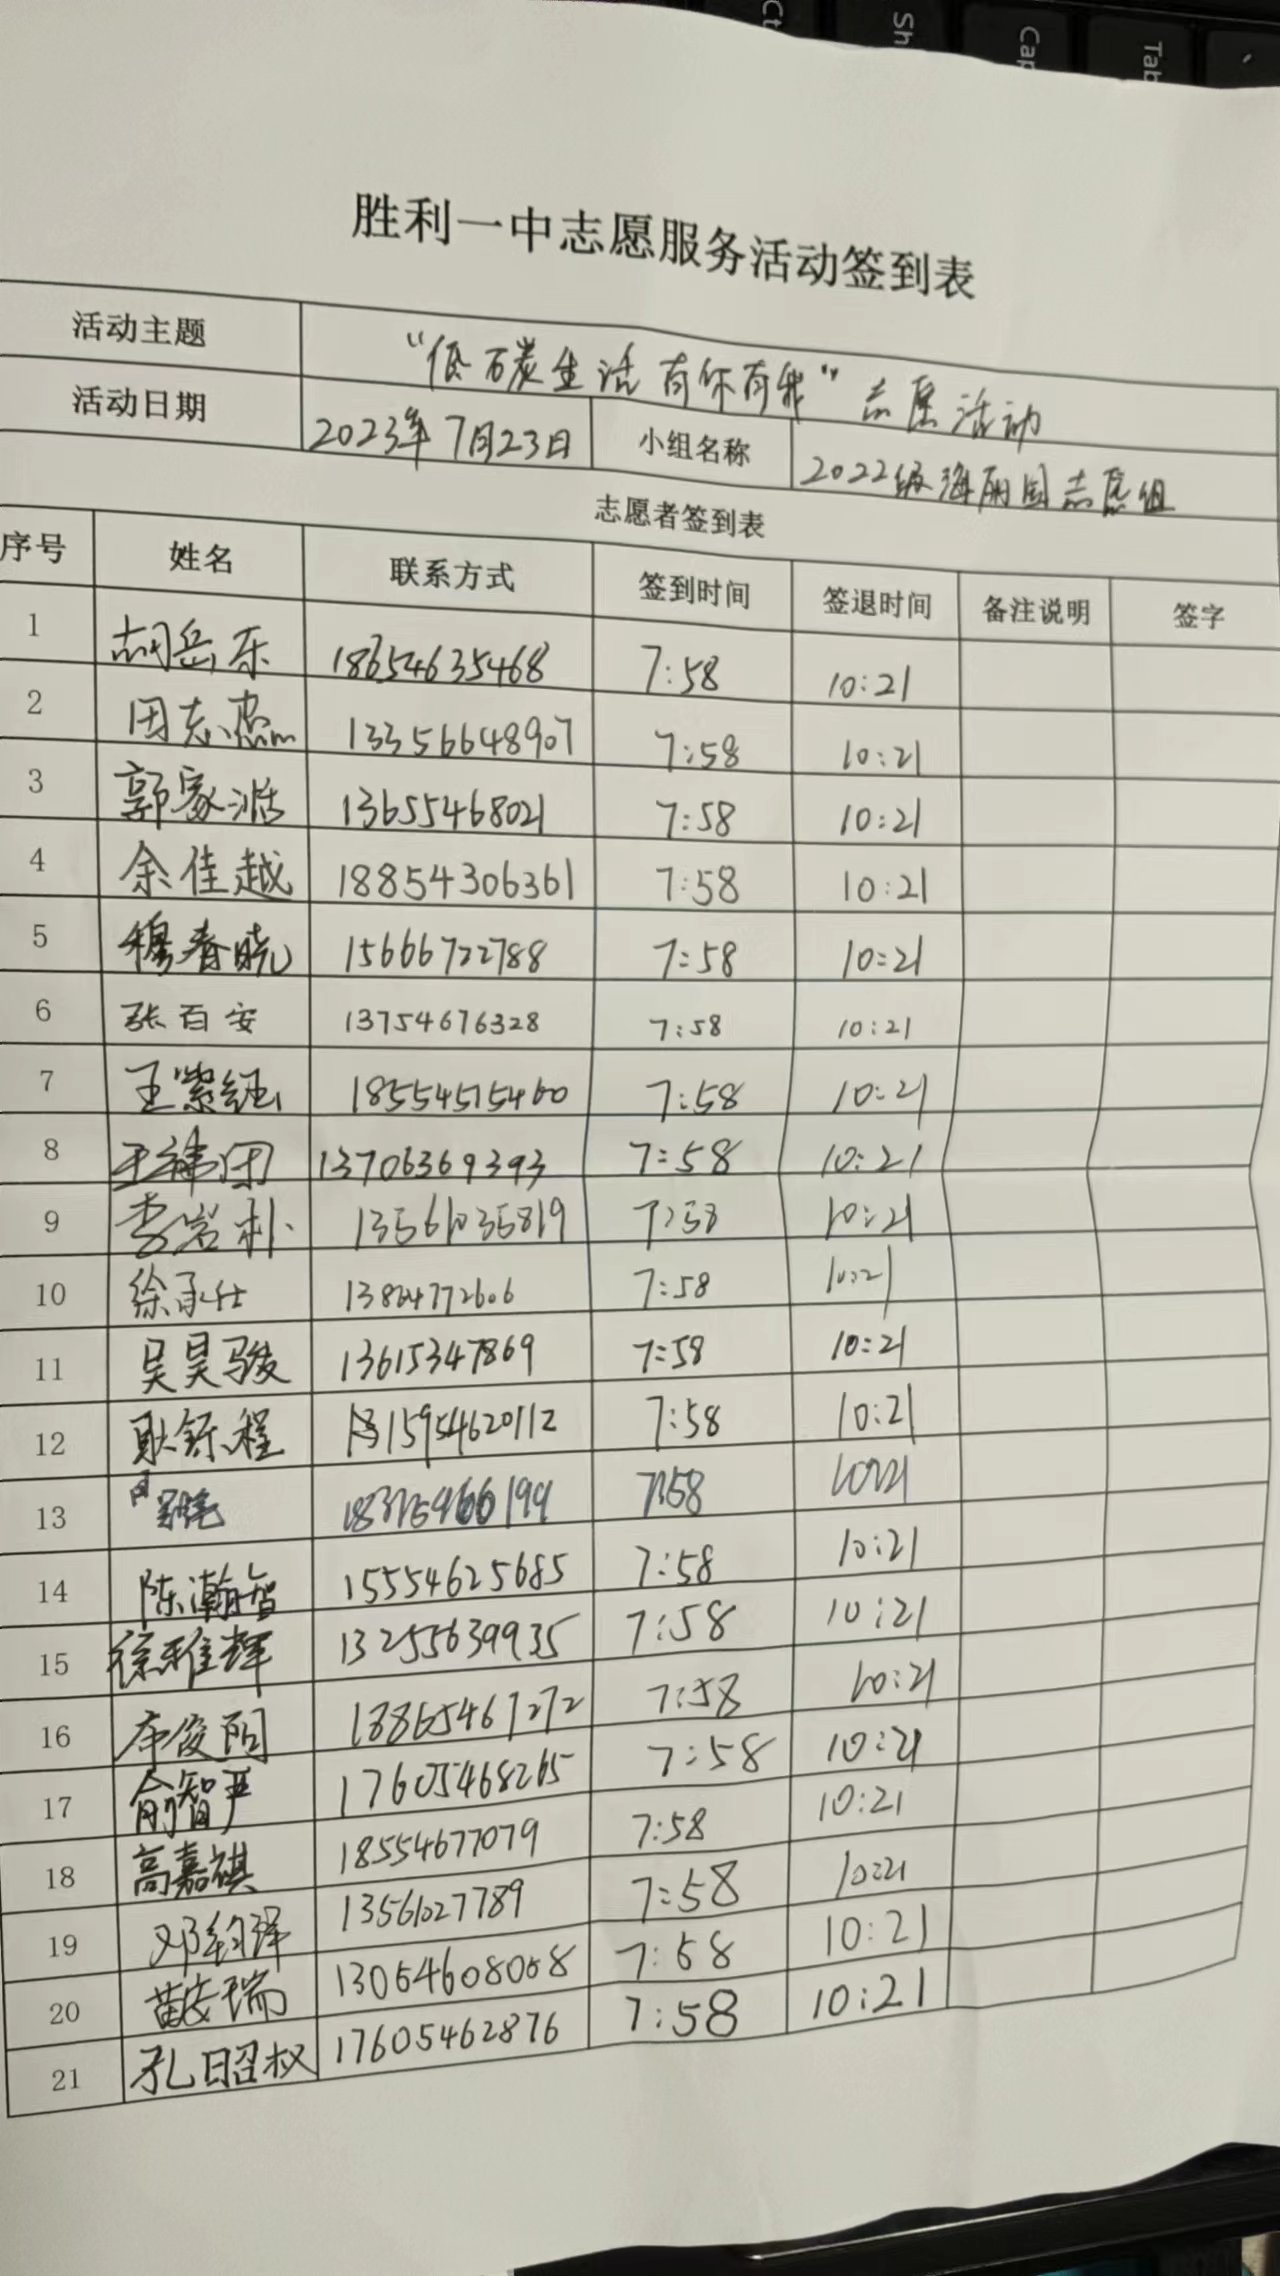 Ct
Sh
Cap
Tab
胜利一中志愿服务活动签到表
活动主题 “低碳生活 有你有我”志愿活动
活动日期 2023年7月23日 小组名称 2022级海丽国志愿组
志愿者签到表
序号 姓名 联系方式 签到时间 签退时间 备注说明 签字
1 胡岳东 18654635468 7:58 10:21
2 田志杰 13356648907 7:58 10:21
3 郭家浩 13655468021 7:58 10:21
4 余佳越 18854306361 7:58 10:21
5 穆春晓 15666722788 7:58 10:21
6 张百安 13754676328 7:58 10:21
7 王紫钰 18554515460 7:58 10:21
8 王祎团 13706369393 7:58 10:21
9 李岩朴 13561035819 7:58 10:21
10 徐承仕 13864772606 7:58 10:21
11 吴昊骏 13615347869 7:58 10:21
12 耿铄程 15954620112 7:58 10:21
13 7:58 10:21
14 陈瀚智 15554625685 7:58 10:21
15 徐雅辉 13255639935 7:58 10:21
16 俊阳 18865467272 7:58 10:21
17 俞智严 17605468265 7:58 10:21
18 高嘉祺 18554677079 7:58 10:21
19 邓钧译 13561027789 7:58 10:21
20 瑞 13064608068 7:58 10:21
21 孔昭权 17605462876 7:58 10:21